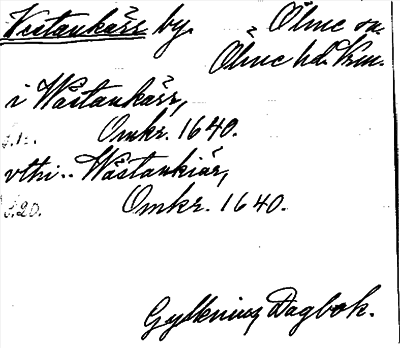 Vestankärr by. Ölme sn.
Ölme hd. Vrm.
i Wästankärr,
Omkr. 1640.
vthi.. Wästankiär,
s.20. Omkr. 1640.
Gyllenius Dagbok.